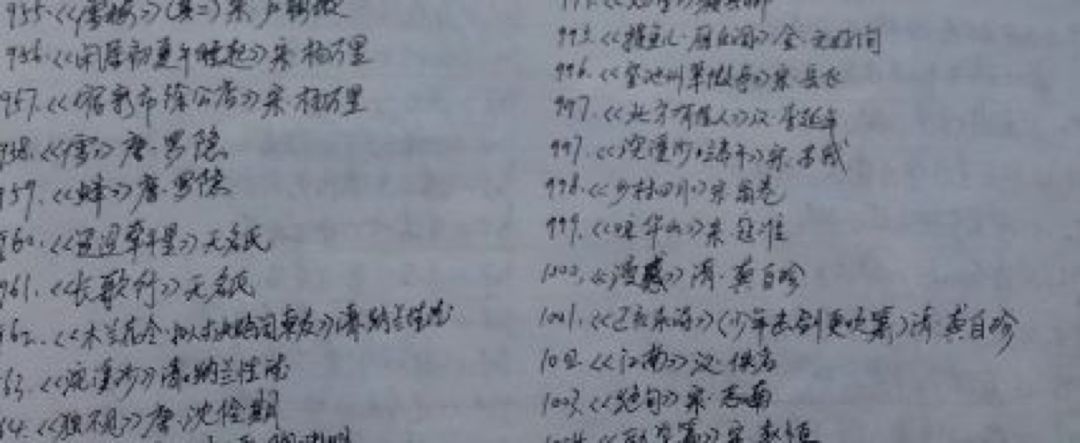 955.《雪梅》(其二)宋·卢梅坡
956.《闲居初夏午睡起》宋·杨万里
957.《宿新市徐公店》宋·杨万里
958.《雪》唐·罗隐
959.《蜂》唐·罗隐
960.《迢迢牵牛星》无名氏
961.《长歌行》无名氏
962.《木兰花令·拟古决绝词柬友》清·纳兰性德
63.《浣溪沙》清·纳兰性德
64.《独不见》唐·沈佺期
995.《摸鱼儿·雁丘词》金·元好问
996.《登池州翠微亭》宋·岳飞
997.《北方有佳人》汉·李延年
997.《浣溪沙·端午》宋·苏轼
998.《乡村四月》宋·翁卷
999.《咏华山》宋·寇准
1000.《漫感》清·龚自珍
1001.《己亥杂诗》(少年击剑更吹箫)清·龚自珍
1002.《江南》汉·佚名
1003.《绝句》宋·志南